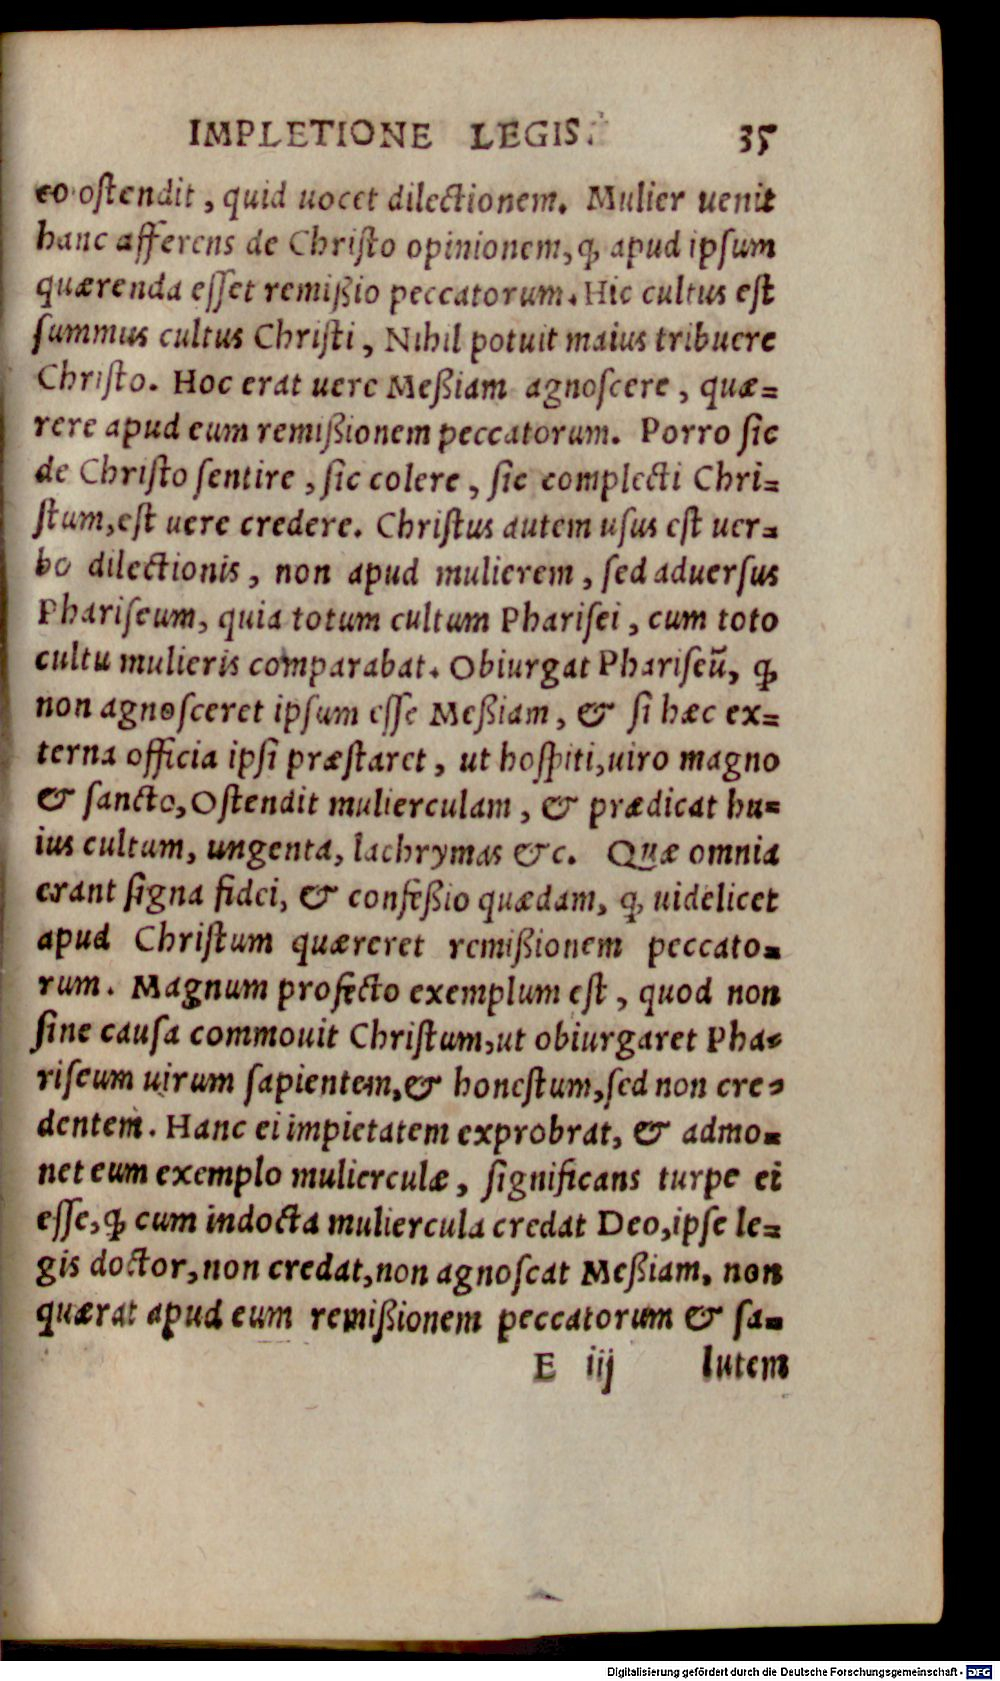 IMPLETIONE LEGIS. 35
eo ostendit, quid uocet dilectionem. Mulier uenit
hanc afferens de Christo opinionem, ꝙ apud ipsum
quærenda esset remißio peccatorum. Hic cultus est
summus cultus Christi, Nihil potuit maius tribuere
Christo. Hoc erat uere Meßiam agnoscere, quæ=
rere apud eum remißionem peccatorum. Porro sic
de Christo sentire, sic colere, sic complecti Chri=
stum, est uere credere. Christus autem usus est uer=
bo dilectionis, non apud mulierem, sed aduersus
Phariseum, quia totum cultum Pharisei, cum toto
cultu mulieris comparabat. Obiurgat Phariseū, ꝙ
non agnosceret ipsum esse Meßiam, & si hæc ex=
terna officia ipsi præstaret, ut hospiti, uiro magno
& sancto, Ostendit mulierculam, & prædicat hu=
ius cultum, ungenta, lachrymas &c. Quæ omnia
erant signa fidei, & confeßio quædam, ꝙ uidelicet
apud Christum quæreret remißionem peccato=
rum. Magnum profecto exemplum est, quod non
sine causa commouit Christum, ut obiurgaret Pha=
riseum uirum sapientem, & honestum, sed non cre=
dentem. Hanc ei impietatem exprobrat, & admo=
net eum exemplo mulierculæ, significans turpe ei
esse, ꝙ cum indocta muliercula credat Deo, ipse le=
gis doctor, non credat, non agnoscat Meßiam, non
quærat apud eum remißionem peccatorum & sa=
E iij lutem
Digitalisierung gefördert durch die Deutsche Forschungsgemeinschaft - DFG